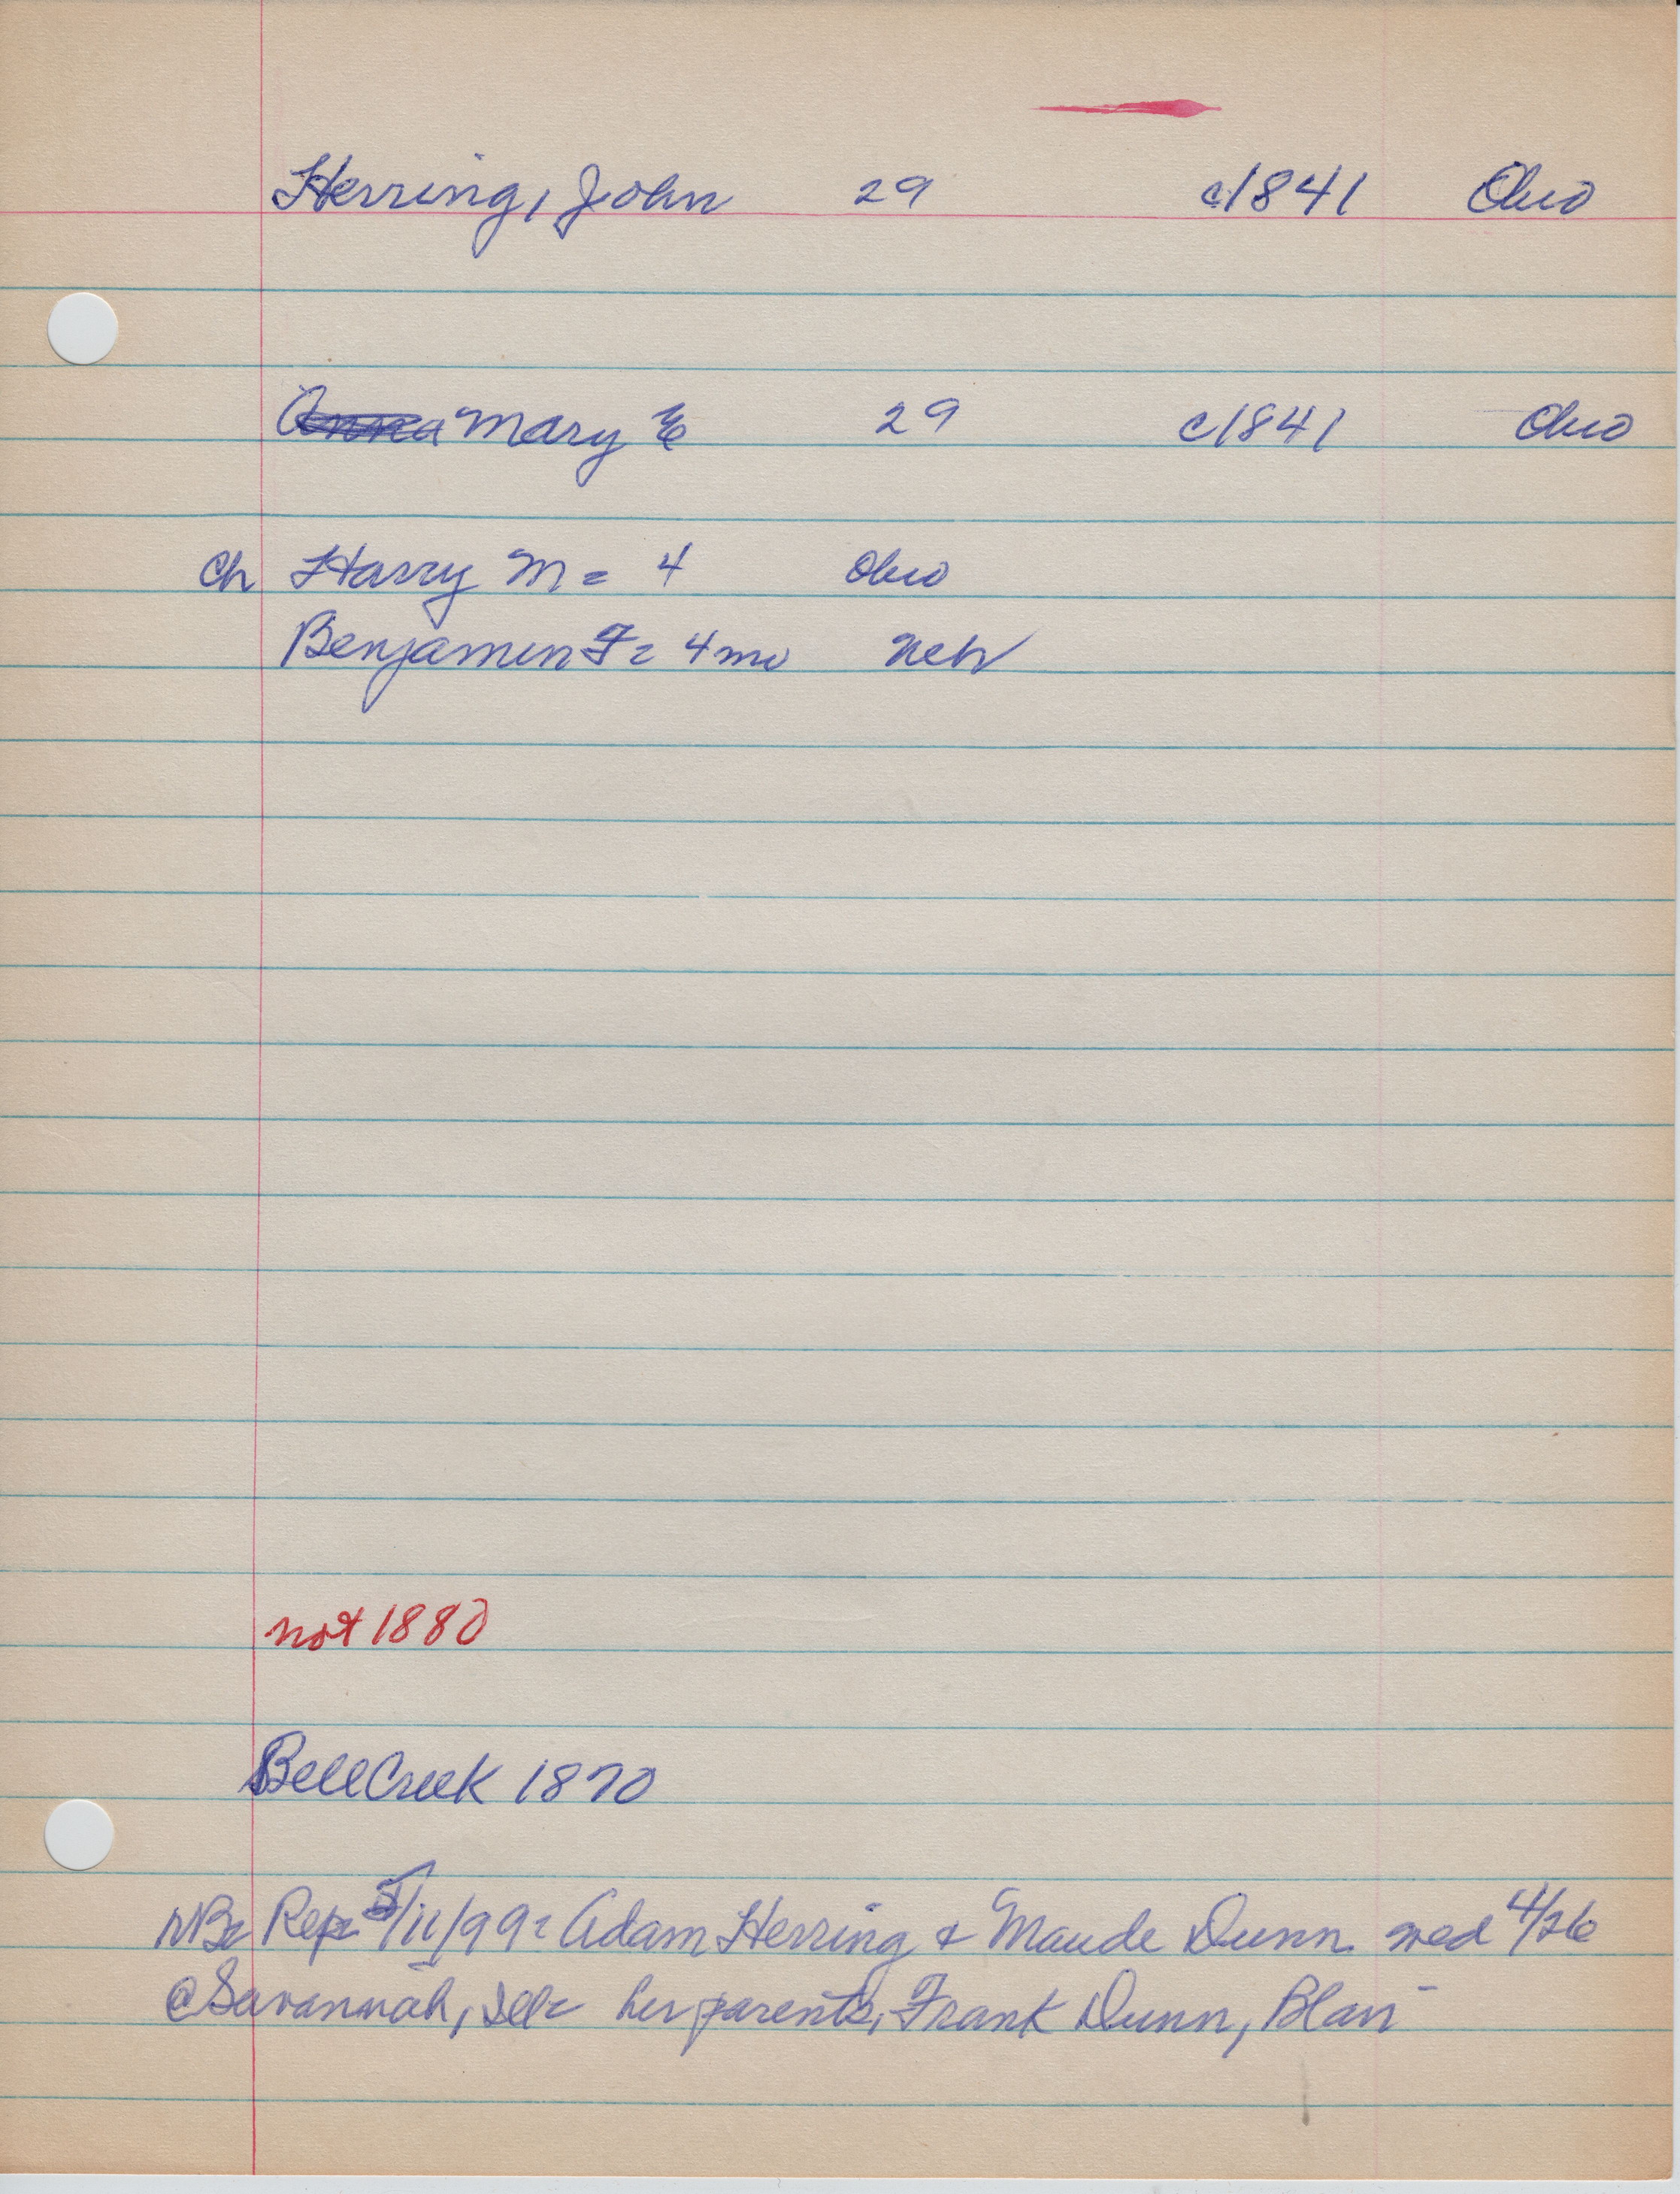 Herring, John 29 c1841 Ohio
Anna Mary E 29 c1841 Ohio
Ch Harry M = 4 Ohio
Benjamin F = 4 mo Neb
not 1880
Bell Creek 1870
NB= Rep= 5/11/99 = Adam Herring & Maude Dunn wed 4/26
@ Savannah, Ill= her parents, Frank Dunn, Blair